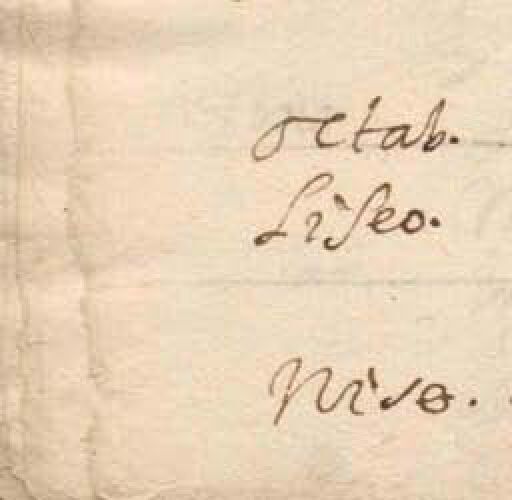 octab.
Liseo.
Niso.